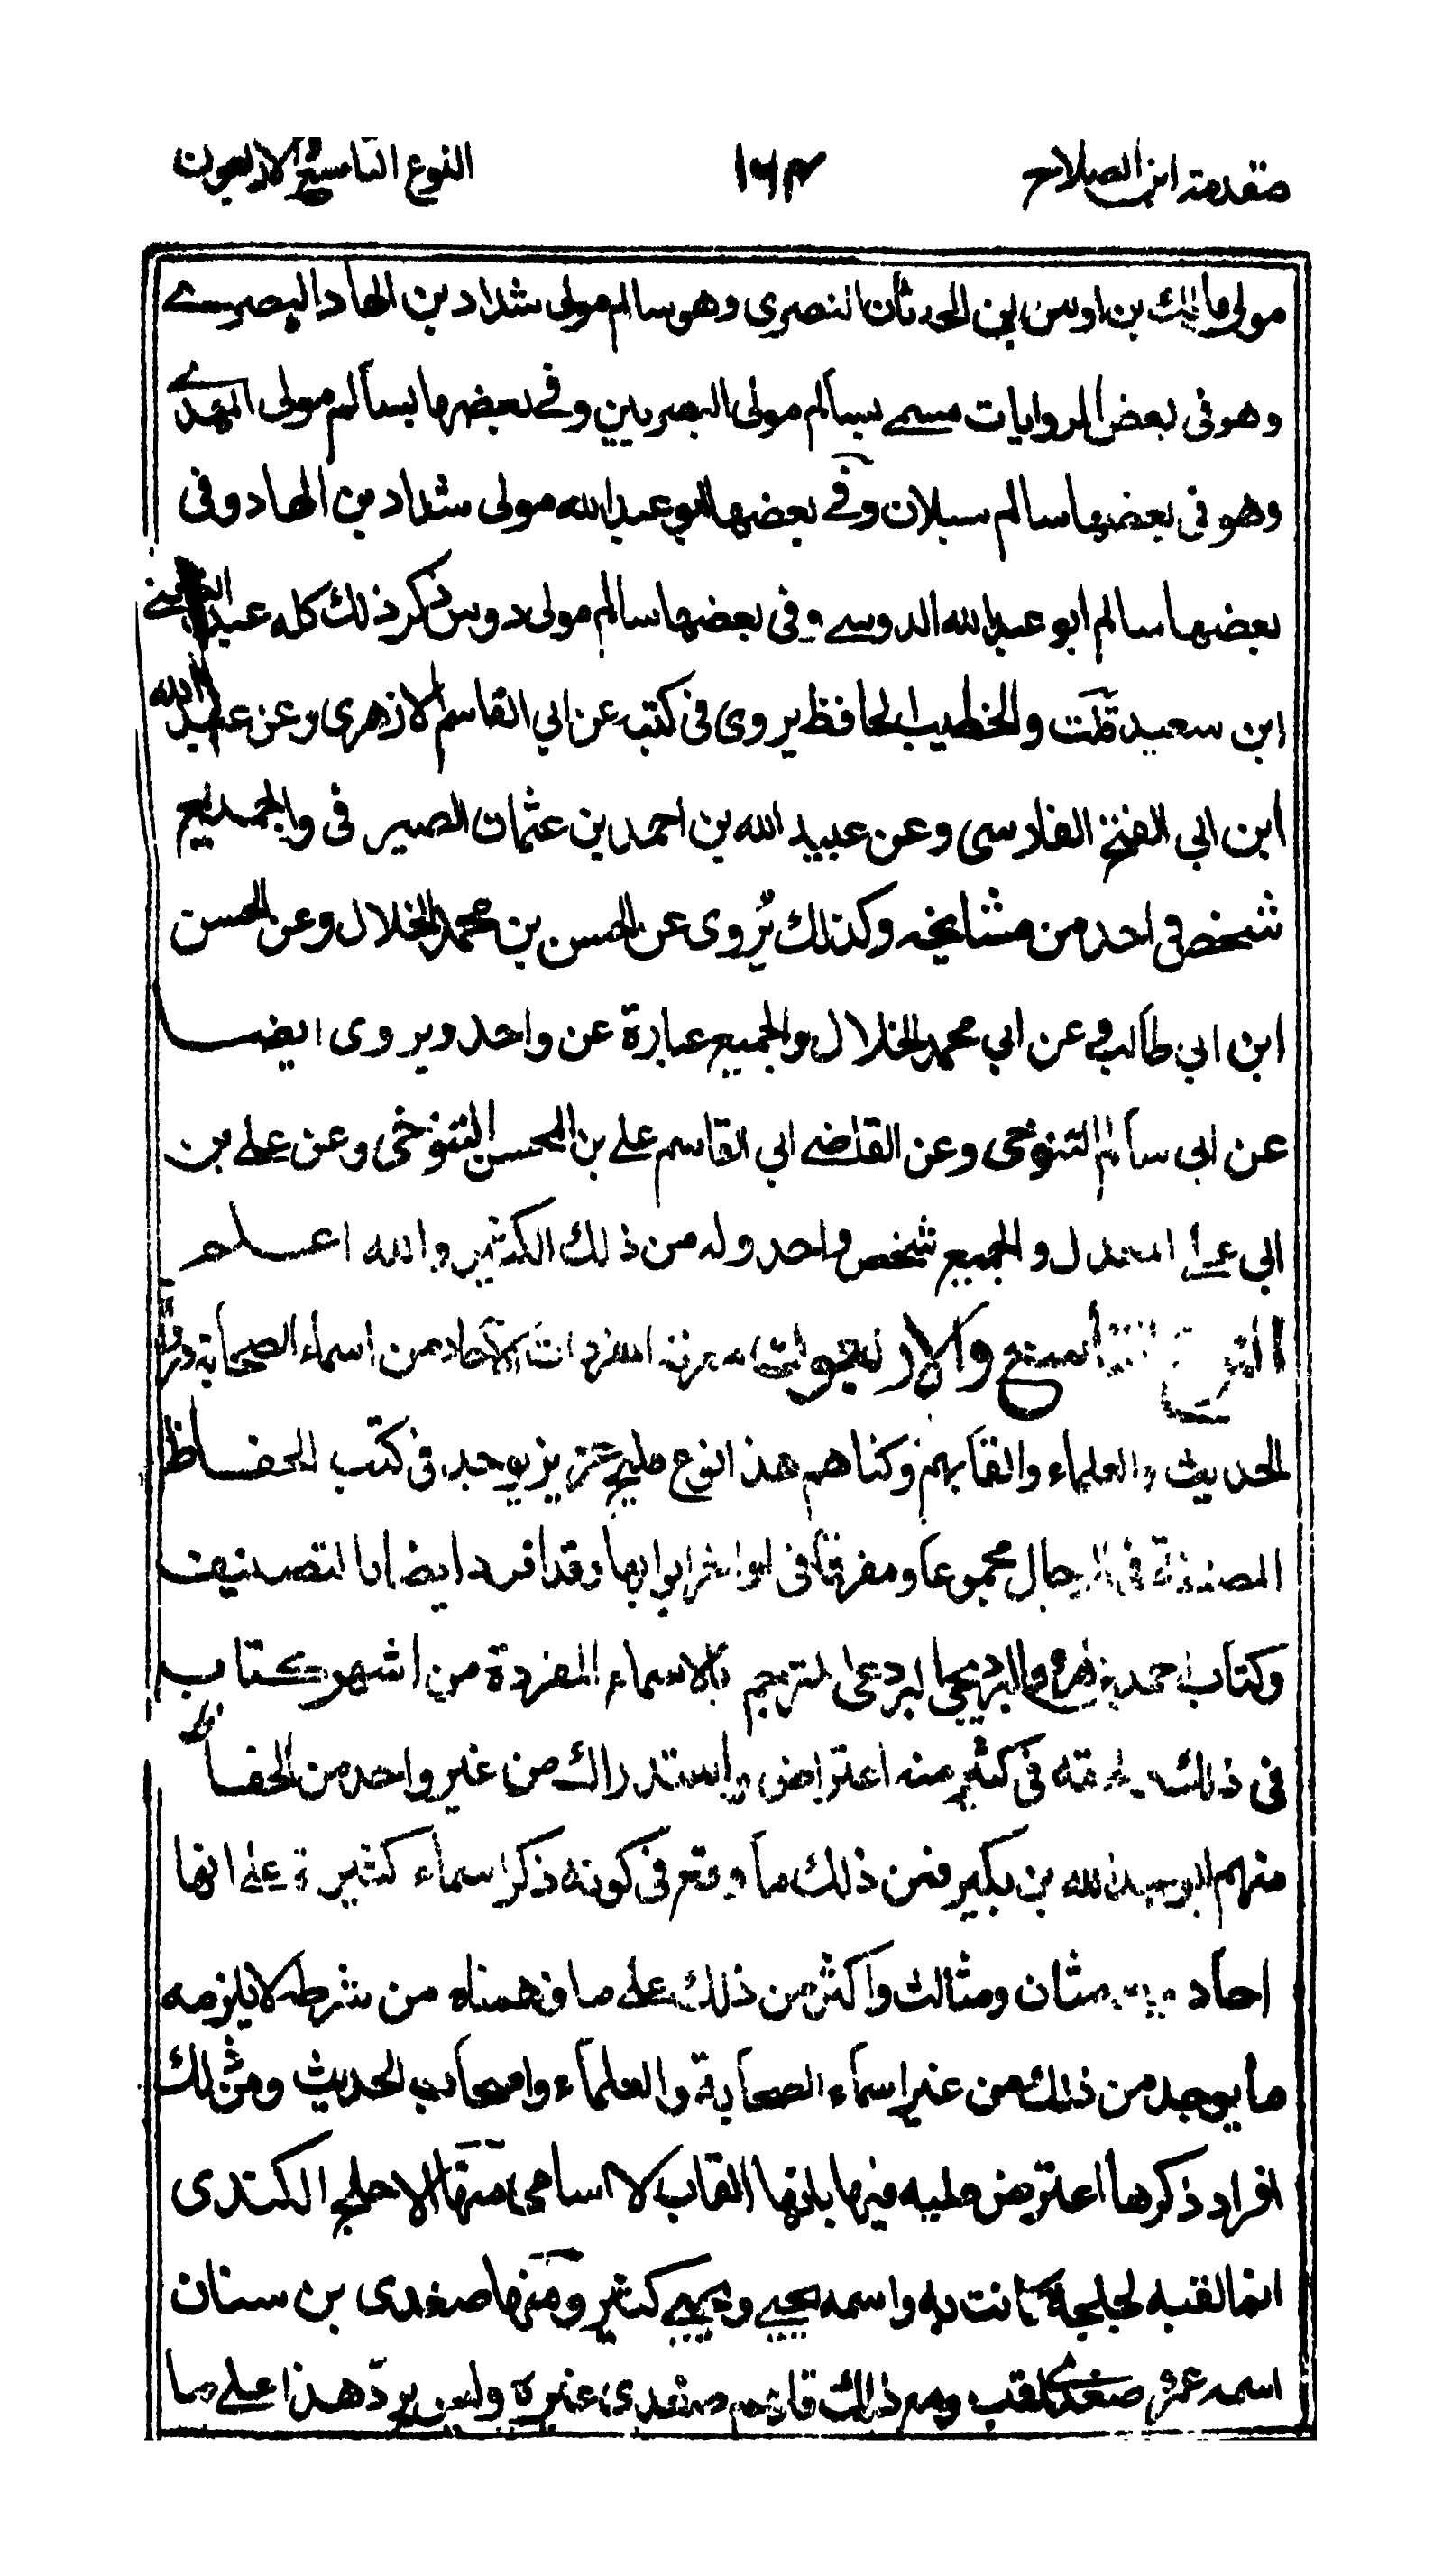 مقدمة ابن الصلاح ١٦٣ النوع التاسع والاربعون
مولى مالك بن اوس بن الحدثان النصرى وهو سالم مولى شداد بن الهاد البصرے
وهو فى بعض الروايات مسمے بسالم مولى البصريين وفے بعضها بسالم مولى المهدے
وهو فى بعضها سالم سبلان وفے بعضها ابو عبد الله مولى شداد بن الهاد وفى
بعضها سالم ابو عبد الله الدوسے وفى بعضها سالم مولى دوس ذكر ذلك كله عبد الغنے
ابن سعيد قلت والخطيب الحافظ يروى فى كتبه عن ابي القاسم الازهرى وعن عبيد الله
ابن ابي الفتح الفارسى وعن عبيد الله بن احمد بن عثمان الصير فى والجميع
شخص واحد من مشايخه وكذلك يُروى عن الحسن بن محمد الخلال وعن الحسن
ابن ابي طالب وعن ابي محمد الخلال والجميع عبارة عن واحد ويروى ايضا
عن ابى سالم التنوخى وعن القاضے ابي القاسم علے بن المحسن التنوخى وعن علے بن
ابى علے المعدل والجميع شخص واحد وله من ذلك الكثير والله اعلم
النوع التاسع والاربعون معرفة المفردات الآحاد من اسماء الصحابة ورواة
الحديث والعلماء والقابهم وكناهم هذا نوع مليح عزيز يوجد فى كتب الحفاظ
المصنفة فى الرجال مجموعا ومفرقا فى اواخر ابوابها وقد افرد ايضا بالتصنيف
وكتاب احمد بن هرون البرديجى البردعى المترجم بالاسماء المفردة من اشهر كتاب
فى ذلك ولحقه فى كثير منه اعتراض واستدراك من غير واحد من الحفاظ
منهم ابو عبد الله بن بكير فمن ذلك ما وقع فى كونه ذكر اسماء كثيرة على انها
احاد وهى مثان ومثالث واكثر من ذلك علے ما فهمناه من شرطه لا يلزمه
ما يوجد من ذلك من غير اسماء الصحابة والعلماء واصحاب الحديث ومن ذلك
افراد ذكرها اعترض عليه فيها بانها القاب لا اسامى منها الاجلح الكندى
انما لقبه لجلحة كانت به واسمه يحيے ويحيے كثير ومنها صغدى بن سنان
اسمه عمر وصغدے لقب ومع ذلك فلهم صغدى غيره وليس يردّ هذا علے ما